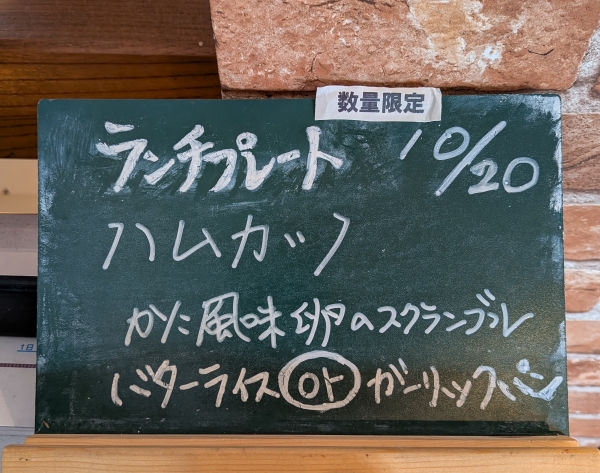 数量限定
ランチプレート 10/20
ハムカツ
かに風味卵のスクランブル
バターライス or ガーリックパン
1日